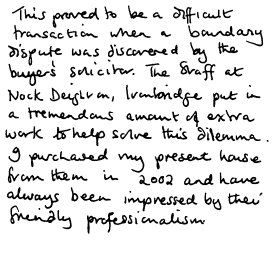 This proved to be a difficult
transaction when a boundary
dispute was discovered by the
buyer's solicitor. The staff at
Nock Deighton, Ironbridge put in
a tremendous amount of extra
work to help solve this dilemma.
I purchased my present house
from them in 2002 and have
always been impressed by their
friendly professionalism